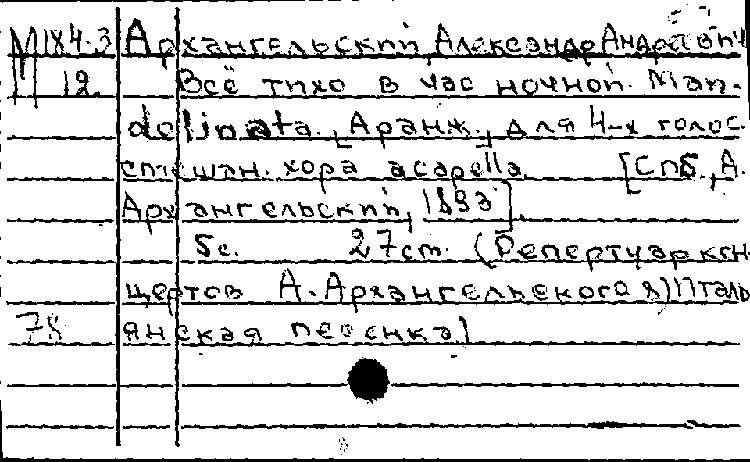 М IX 4-3 Архангельский, Александр Андреевич
П 12. Всё тихо в час ночной. Man-
dolinata. [Аранж.] для 4-х голос.
смешан. хора acapella. [СПБ., А.
Архангельский, 1893].
5с. 27 cm. (Репертуар кон
цертов А. Архангельского в) Италь
янская песенка)